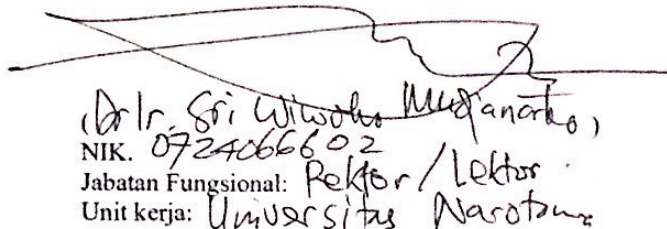 (Dr Ir. Sri Wiwoho Mudjanarko)
NIK. 0724066602
Jabatan Fungsional: Rektor / Lektor
Unit kerja: Universitas Narotama